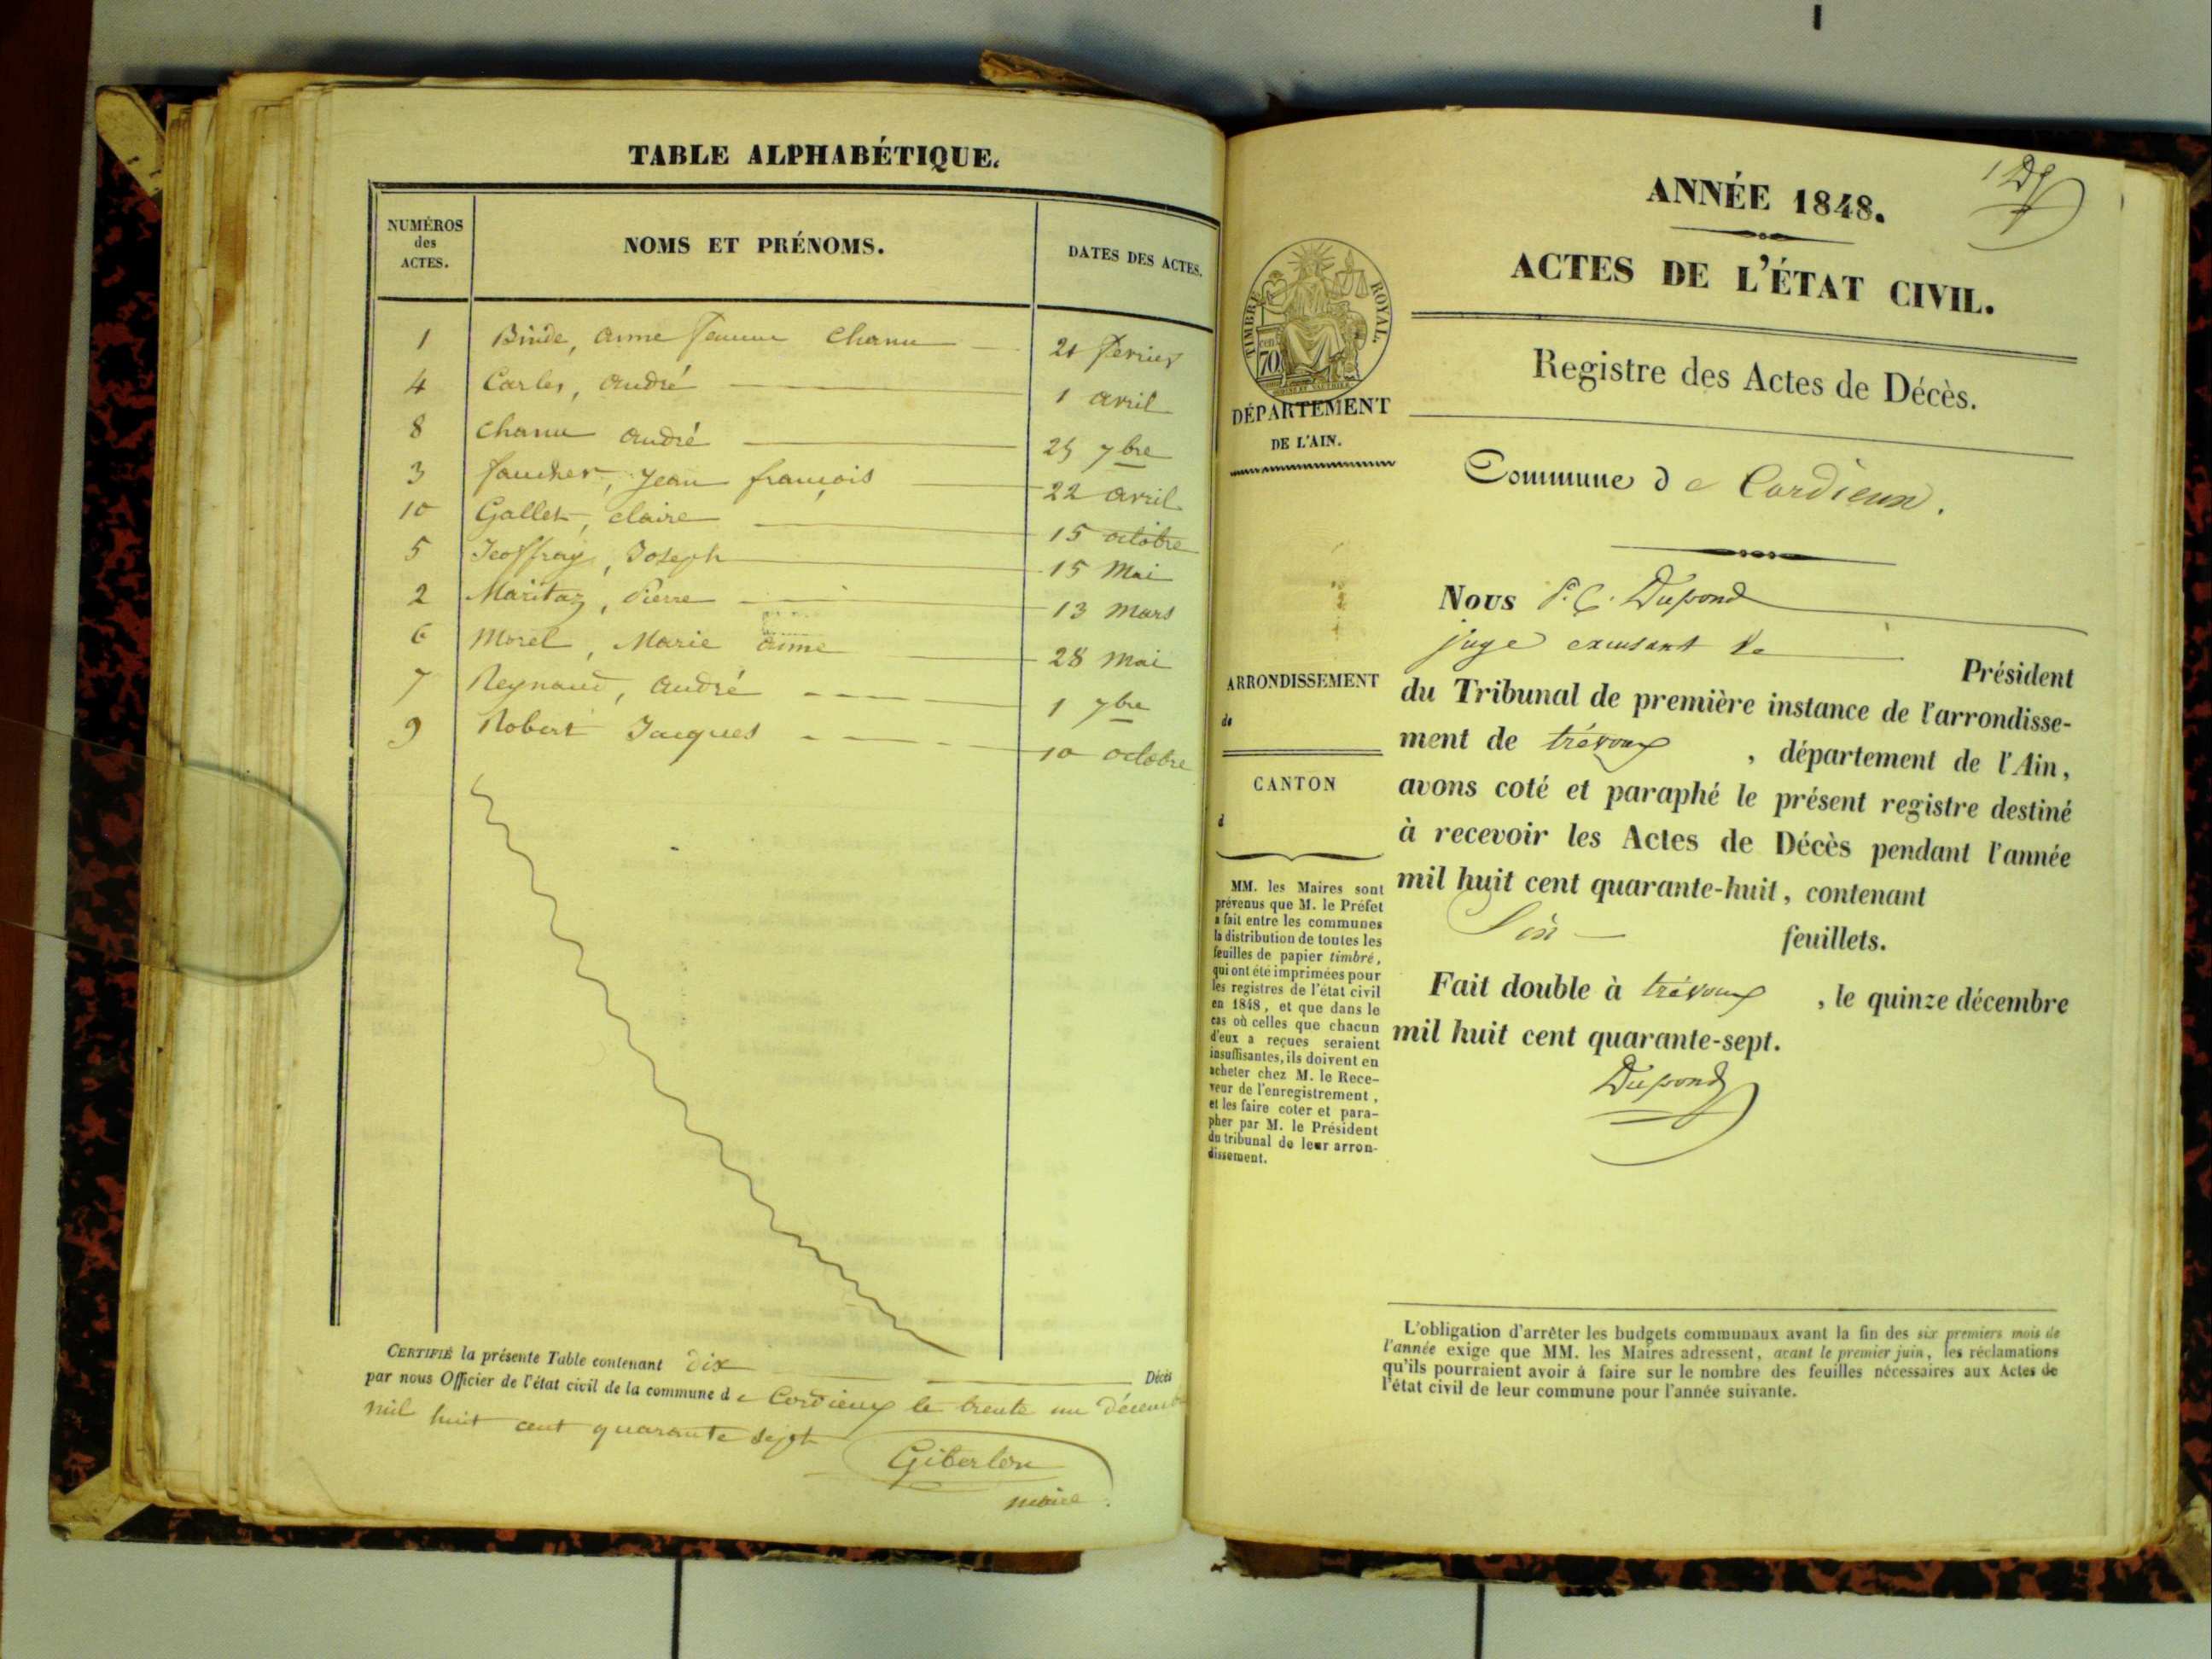 TABLE ALPHABÉTIQUE.
NUMÉROS des ACTES.
NOMS ET PRÉNOMS.
DATES DES ACTES.
1 Binde, anne femme Chanu 21 fevrier
4 Carles, andré 1 avril
8 Chanu andré 25 7bre
3 faucher, Jean françois 22 avril
10 Gallet, claire 15 octobre
5 Jeoffray, Joseph 15 Mai
2 Maritaz, Pierre 13 mars
6 Morel, Marie anne 28 Mai
7 Reynaud, andré 1 7bre
9 Robert Jacques 10 octobre
CERTIFIÉ la présente Table contenant Dix Décès
par nous Officier de l'état civil de la commune de Cordieux le trente un Décembre
mil huit cent quarante sept
Giberlon
maire
ANNÉE 1848.
ACTES DE L'ÉTAT CIVIL.
TIMBRE ROYAL.
cen 70
DÉPARTEMENT
DE L'AIN.
Registre des Actes de Décès.
Commune de Cordieux.
Nous Dupond
juge Président
ARRONDISSEMENT
de
du Tribunal de première instance de l'arrondisse-
ment de trévoux, département de l'Ain,
CANTON
d
avons coté et paraphé le présent registre destiné
à recevoir les Actes de Décès pendant l'année
mil huit cent quarante-huit, contenant
feuillets.
Fait double à trévoux, le quinze décembre
mil huit cent quarante-sept.
Dupond
MM. les Maires sont
prévenus que M. le Préfet
a fait entre les communes
la distribution de toutes les
feuilles de papier timbré,
qui ont été imprimées pour
les registres de l'état civil
en 1848, et que dans le
cas où celles que chacun
d'eux a reçues seraient
insuffisantes, ils doivent en
acheter chez M. le Rece-
veur de l'enregistrement,
et les faire coter et para-
pher par M. le Président
du tribunal de leur arron-
dissement.
L'obligation d'arrêter les budgets communaux avant la fin des six premiers mois de
l'année exige que MM. les Maires adressent, avant le premier juin, les réclamations
qu'ils pourraient avoir à faire sur le nombre des feuilles nécessaires aux Actes de
l'état civil de leur commune pour l'année suivante.